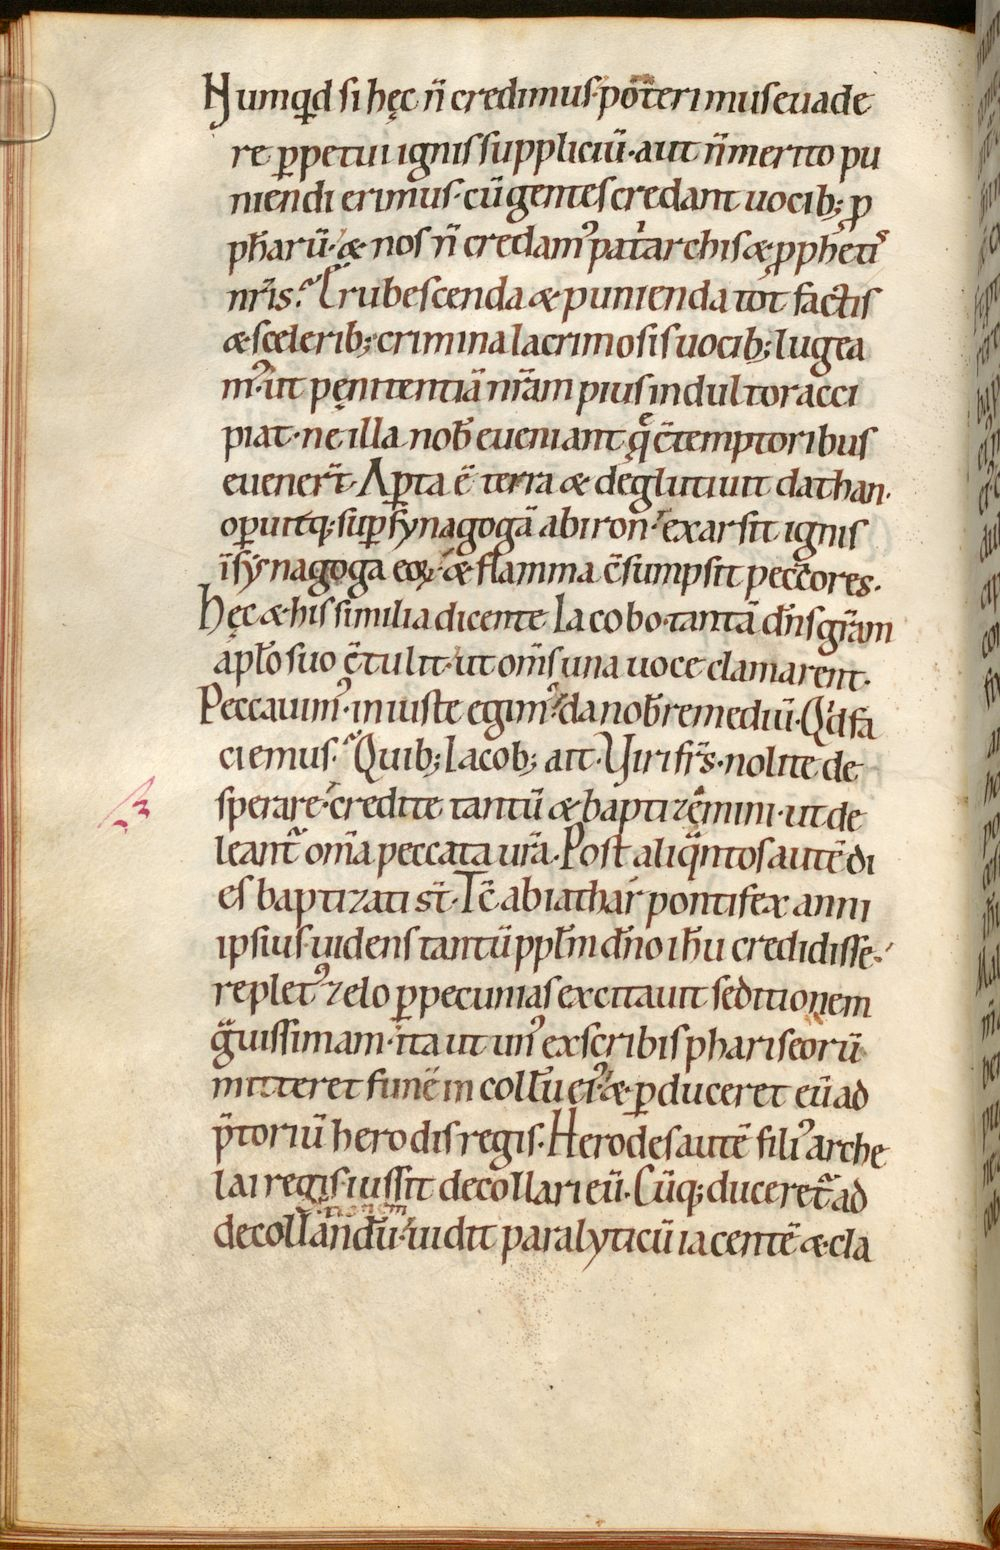 Numqd si hęc n̄ credimus· poterimus euade
re ꝑpetui ignis suppliciū· aut n̄ merito pu
niendi erimus· cū gentes credant uocib; ꝓ
phāru· & nos n̄ credam᾽ patarchis & ꝓpheti᾽
nr̄is? Erubescenda & punienda tot factis
& scelerib; crimina lacrimosis uocib; lugea
m᾽· ut pęnitentiā nr̄am pius indultor acci
piat· ne illa nob̄ eueniant q̄ c̄temptoribus
euener̄t· Aꝑta ē terra & deglutiuit dathan·
oꝑuitq; suꝑ synagogā abiron· exarsit ignis
ī synagoga eoꝝ· & flamma c̄sumpsit peccatores·
Hęc & his similia dicente Iacobo· tantā dn̄s gr̄am
apl̄o suo c̄tulit· ut om̄s una uoce clamarent·
Peccauim᾽· iniuste egim᾽· da nob̄ remediū· Qd fa
ciemus? Quib; Iacob; ait· Uiri fr̄s· nolite de
sperare· credite tantū & baptizemini· ut de
leant᷑ om̄a peccata ur̄a· Post aliqntos autē di
es baptizati st̄· Tc̄ abiathar pontifex anni
ipsius· uidens tantū ppl̄m dn̄o ih̄u credidisse·
replet᾽ zelo ꝑ pecunias excitauit seditionem
guissimam· ita ut un᾽ ex scribis phariseorū
mitteret funē in collū ei᾽· & ꝑduceret eū ad
p̄toriū herodis regis· Herodes autē fili᾽ arche
lai regis· iussit decollari eū· Cūq; duceret᷑ ad
tionem
decollandū· uidit paralyticū iacentē & cla